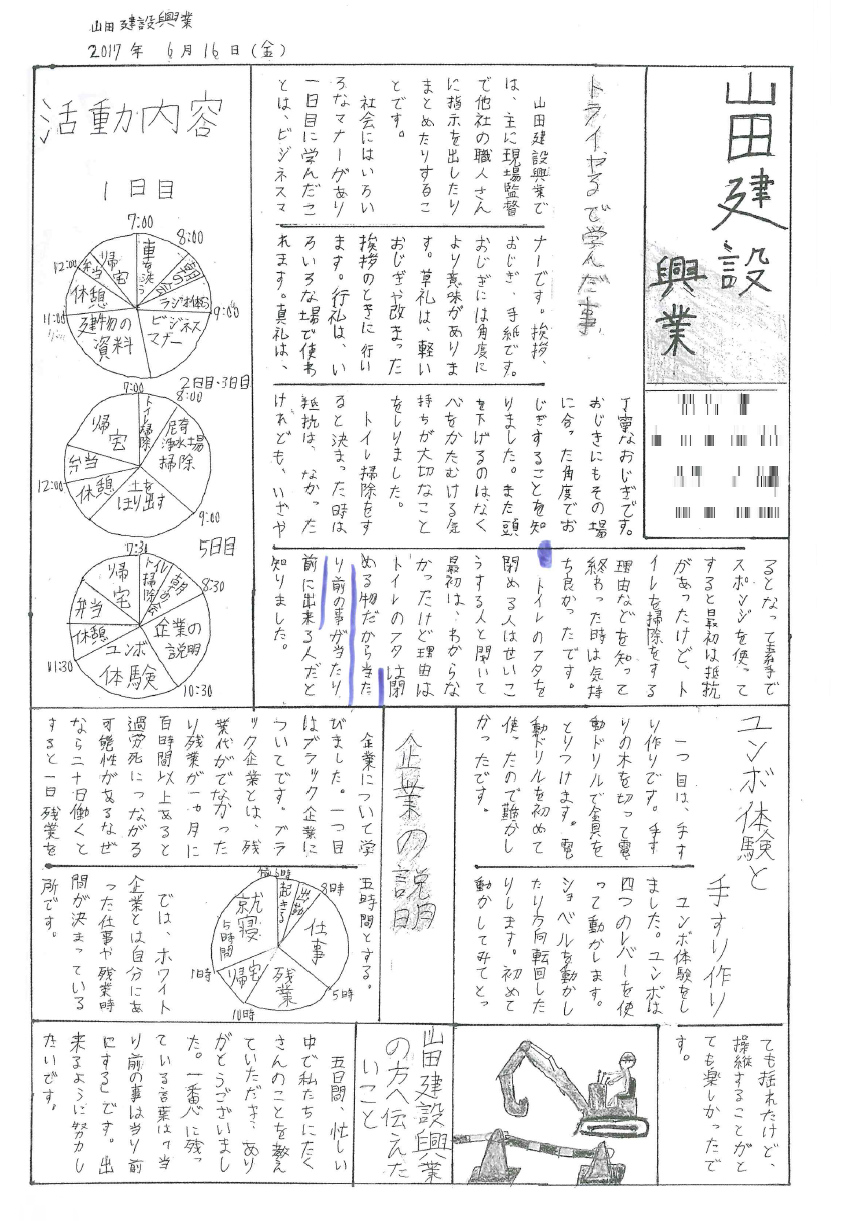 山田建設興業
2017年 6月16日(金)
山田建設
興業
トライやるで学んだ事
山田建設興業で
は、主に現場監督
で他社の職人さん
に指示を出したり
まとめたりするこ
とです。
社会にはいろい
ろなマナーがあり
一日目に学んだこ
とは、ビジネスマ
ナーです。挨拶、
おじぎ、手紙です。
おじぎには角度に
より意味がありま
す。草礼は、軽い
おじぎや改まった
挨拶のときに行い
ます。行礼は、い
ろいろな場で使わ
れます。真礼は、
丁寧なおじぎです。
おじぎにもその場
に合った角度でお
じぎすることを知
りました。また頭
を下げるのはなく
心をかたむける気
持ちが大切なこと
をしりました。
トイレ掃除をす
ると決まった時は
抵抗は、なかった
けれども、いざや
るとなって素手で
スポンジを使って
すると最初は抵抗
があったけど、ト
イレを掃除をする
理由などを知って
終わった時は気持
ち良かったです。
トイレのフタを
閉める人はせいこ
うする人と聞いて
最初は、わからな
かったけど理由は
トイレのフタは閉
める物だから当た
り前の事が当たり
前に出来る人だと
知りました。
活動内容
1日目
7:00
車を洗う
8:00
朝の会
ラジオ体操
9:00
ビジネス
マナー
建物の
資料
11:00
休憩
12:00
弁当
帰宅
2日目・3日目
7:00
トイレ掃除
8:00
尼奇
浄水場
掃除
9:00
土を
ほり出す
休憩
12:00
弁当
帰宅
5日目
7:31
トイレ
掃除
朝の会
8:30
企業の
説明
10:30
ユンボ
体験
11:30
休憩
弁当
帰宅
ユンボ体験と
手すり作り
一つ目は、手す
り作りです。手す
りの木を切って電
動ドリルで金具を
とりつけます。電
動ドリルを初めて
使ったので難かし
かったです。
ユンボ体験をし
ました。ユンボは
四つのレバーを使
って動かします。
ショベルを動かし
たり方向転回した
りします。初めて
動かしてみてとっ
ても揺れたけど、
操縦することがと
ても楽しかったで
す。
企業の説明
企業について学
びました。一つ目
はブラック企業に
ついてです。ブラ
ック企業とは、残
業代がでなかった
り残業が一ヵ月に
百時間以上あると
過労死につながる
可能性があるなぜ
なら二十日働くと
すると一日残業を
五時間とする。
6時
起きる
出勤
8時
仕事
5時
残業
10時
帰宅
1時
就寝
5時間
では、ホワイト
企業とは自分にあ
った仕事や残業時
間が決まっている
所です。
山田建設興業
の方へ伝えた
いこと
五日間、忙しい
中で私たちにたく
さんのことを教え
ていただき、あり
がとうございまし
た。一番心に残っ
ている言葉は「当
り前の事は当り前
にする」です。出
来るように努力し
たいです。